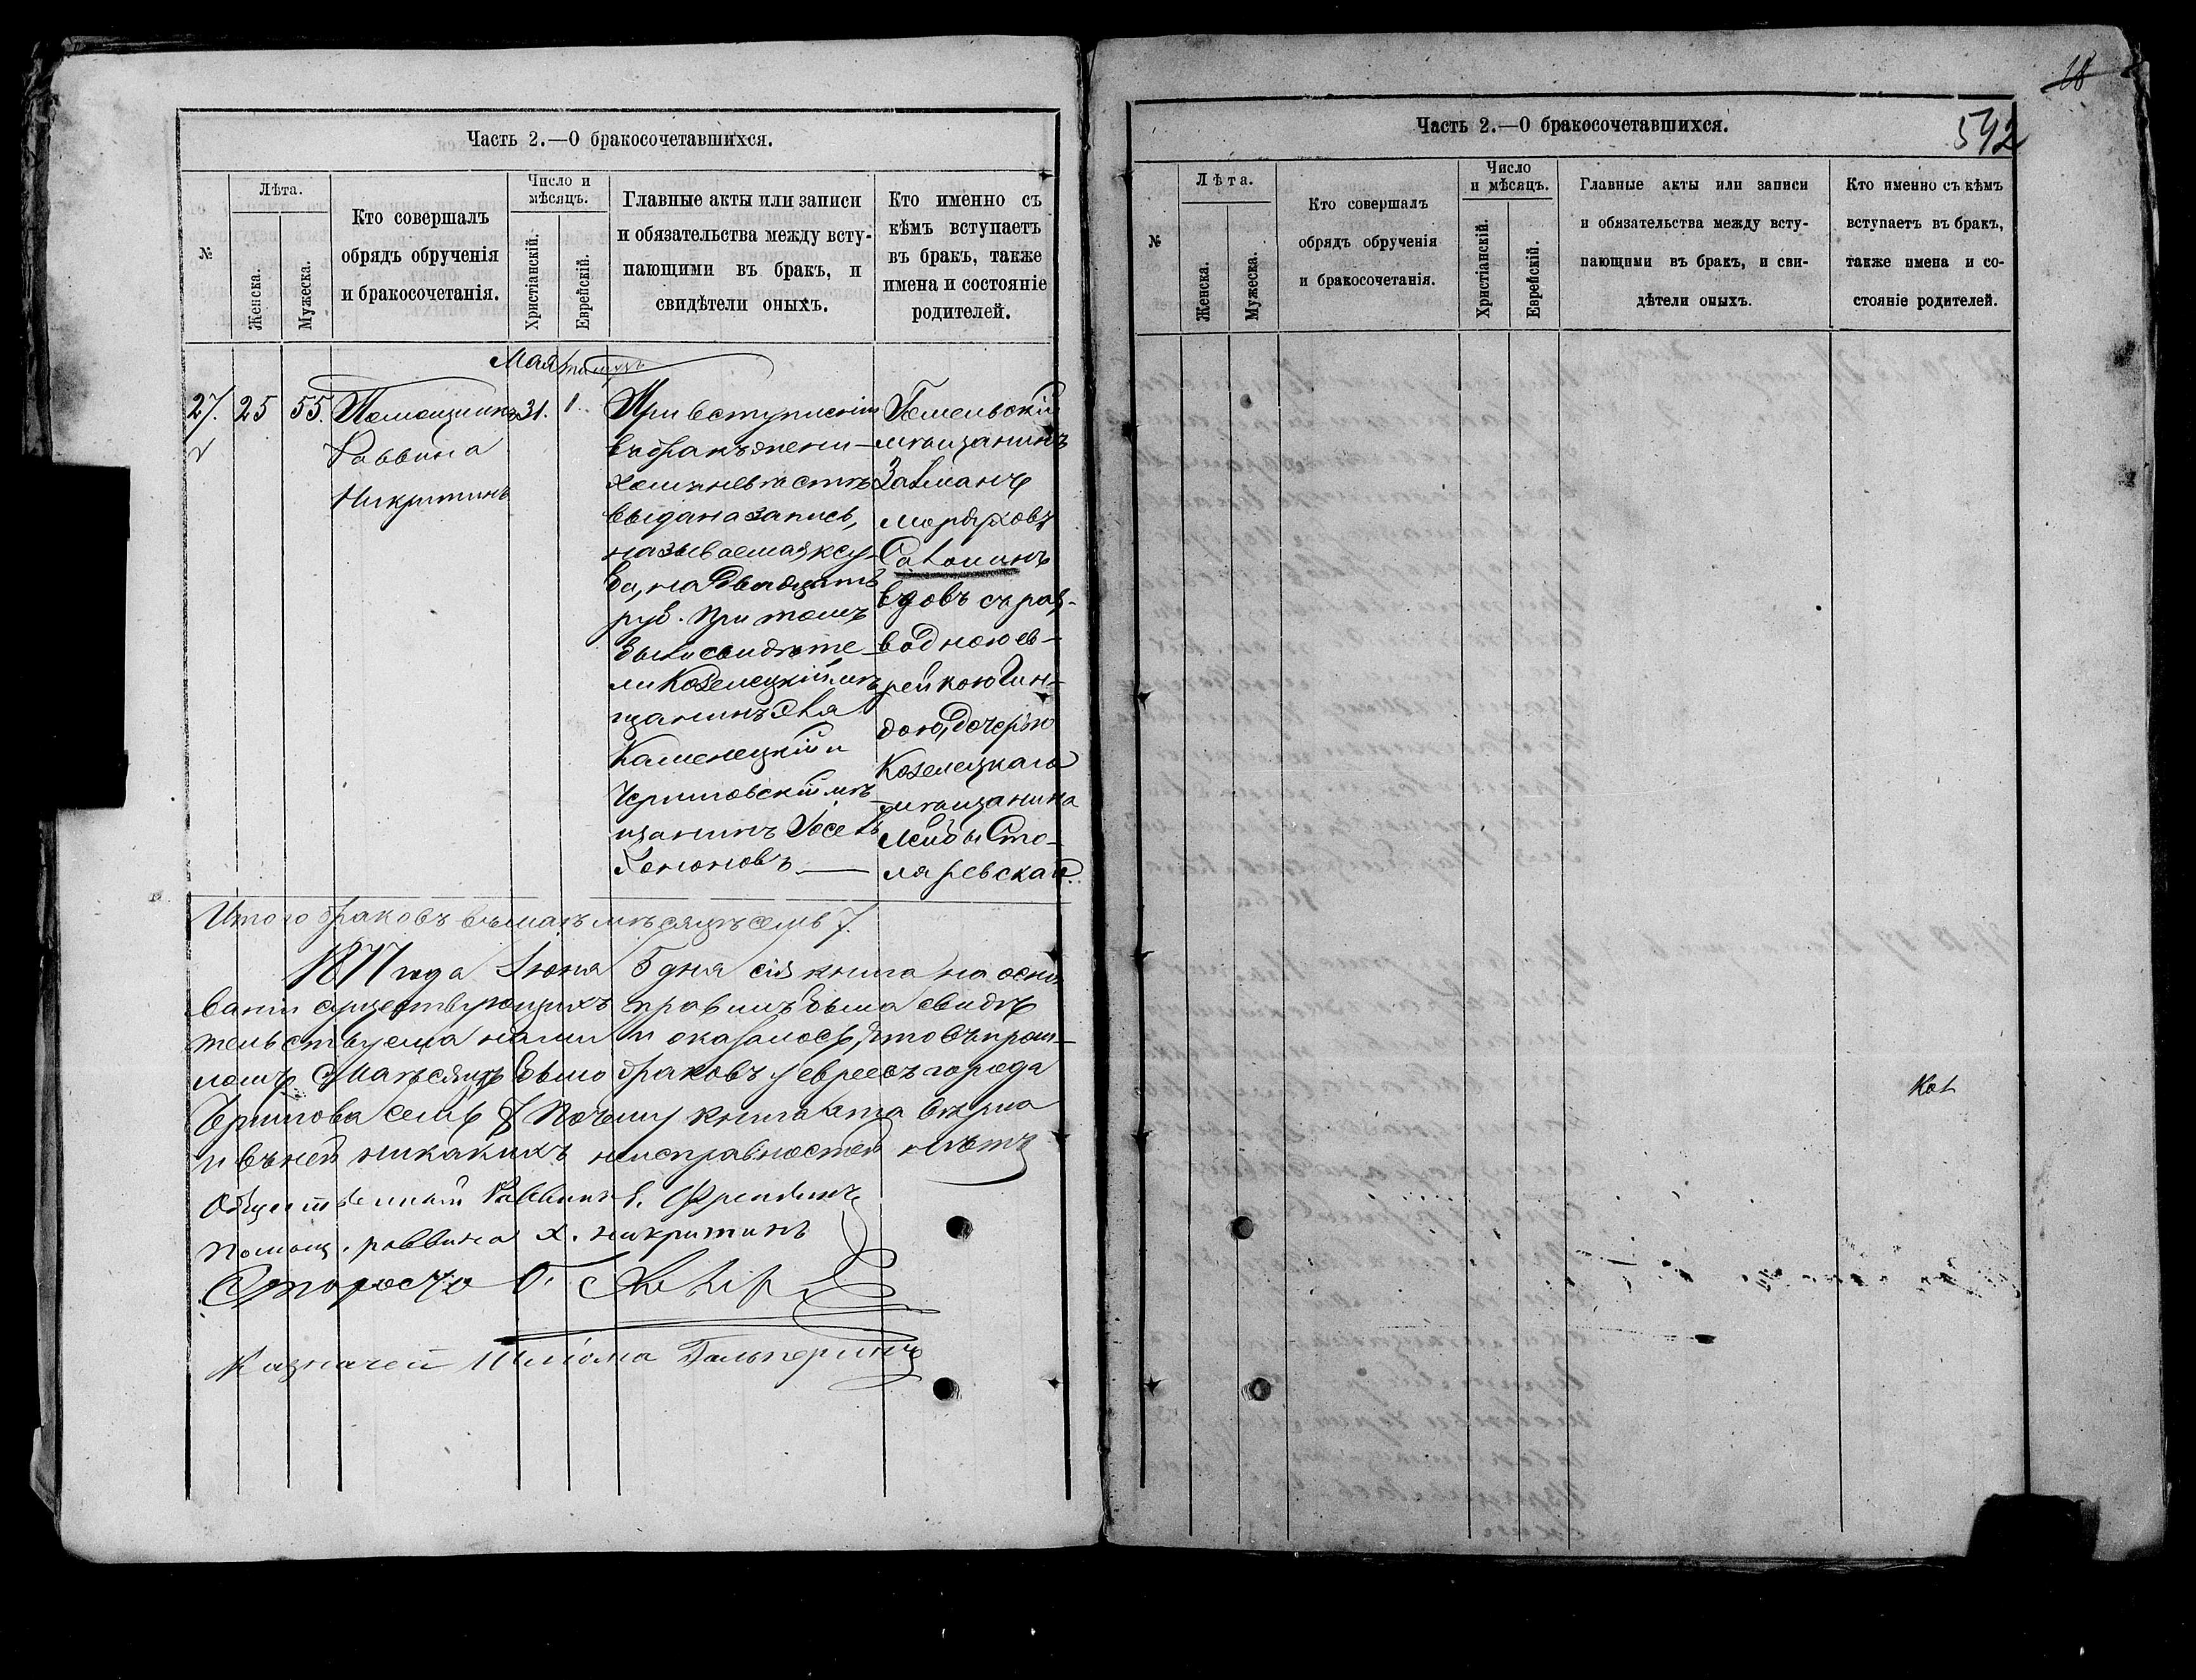 Часть 2.—О бракосочетавшихся.
№
Лѣта.
Женска.
Мужеска.
Кто совершалъ
обрядъ обрученія
и бракосочетанія.
Число и
мѣсяцъ.
Христіанскій.
Еврейскій.
Главные акты или записи
и обязательства между всту-
пающими въ бракъ, и
свидѣтели оныхъ.
Кто именно съ
кѣмъ вступаетъ
въ бракъ, также
имена и состояніе
родителей.
Мая
27. 25 55. Помощникъ 31. 1.
Раввина
Никритинъ
При вступленіи
въ бракъ жени-
хомъ невѣстѣ
выдана запись,
называемая ксу-
ба, на двадцать
руб. При томъ
были свидѣте-
ли Козелецкій мѣ-
щанинъ
Каменецкій и
Черниговскій мѣ-
щанинъ
Хононовъ
Гомельскій
мѣщанинъ
Залманъ
Мордуховъ
вдовъ съ раз-
водною ев-
рейкою Гин-
дою, дочерью
Козелецкаго
мѣщанина
Лейбы Сто-
ляревскаго.
Итого браковъ въ маѣ мѣсяцѣ семь 7.
1877 года Іюня 5 дня сія книга на осно-
ваніи существующихъ правилъ была свидѣ
тельствуема нами и оказалось, что въ прош-
ломъ мѣсяцѣ было браковъ у евреевъ города
Чернигова семь 7 Почему книга эта вѣрна
и въ ней никакихъ неисправностей нѣтъ
Общественный Раввинъ
Помощ. раввина Х. Никритинъ
Староста
Казначей Шлиома Гальперинъ
18
Часть 2.—О бракосочетавшихся.
542
№
Лѣта.
Женска.
Мужеска.
Кто совершалъ
обрядъ обрученія
и бракосочетанія.
Число
и мѣсяцъ.
Христіанскій.
Еврейскій.
Главные акты или записи
и обязательства между всту-
пающими въ бракъ, и сви-
дѣтели оныхъ.
Кто именно съ кѣмъ
вступаетъ въ бракъ,
также имена и со-
стояніе родителей.